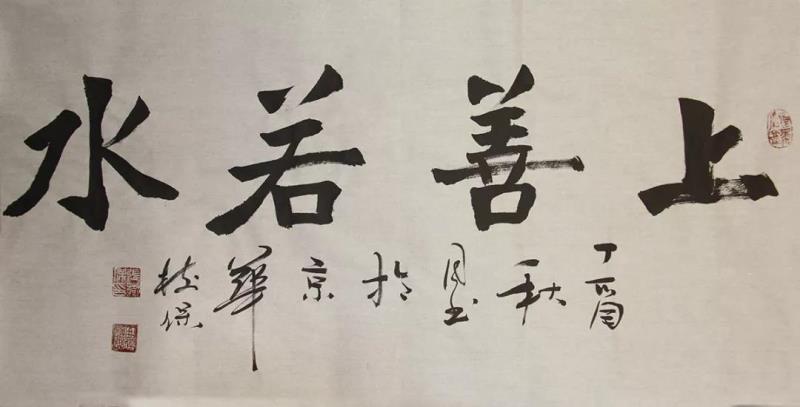 上善若水
丁酉秋月书於京华